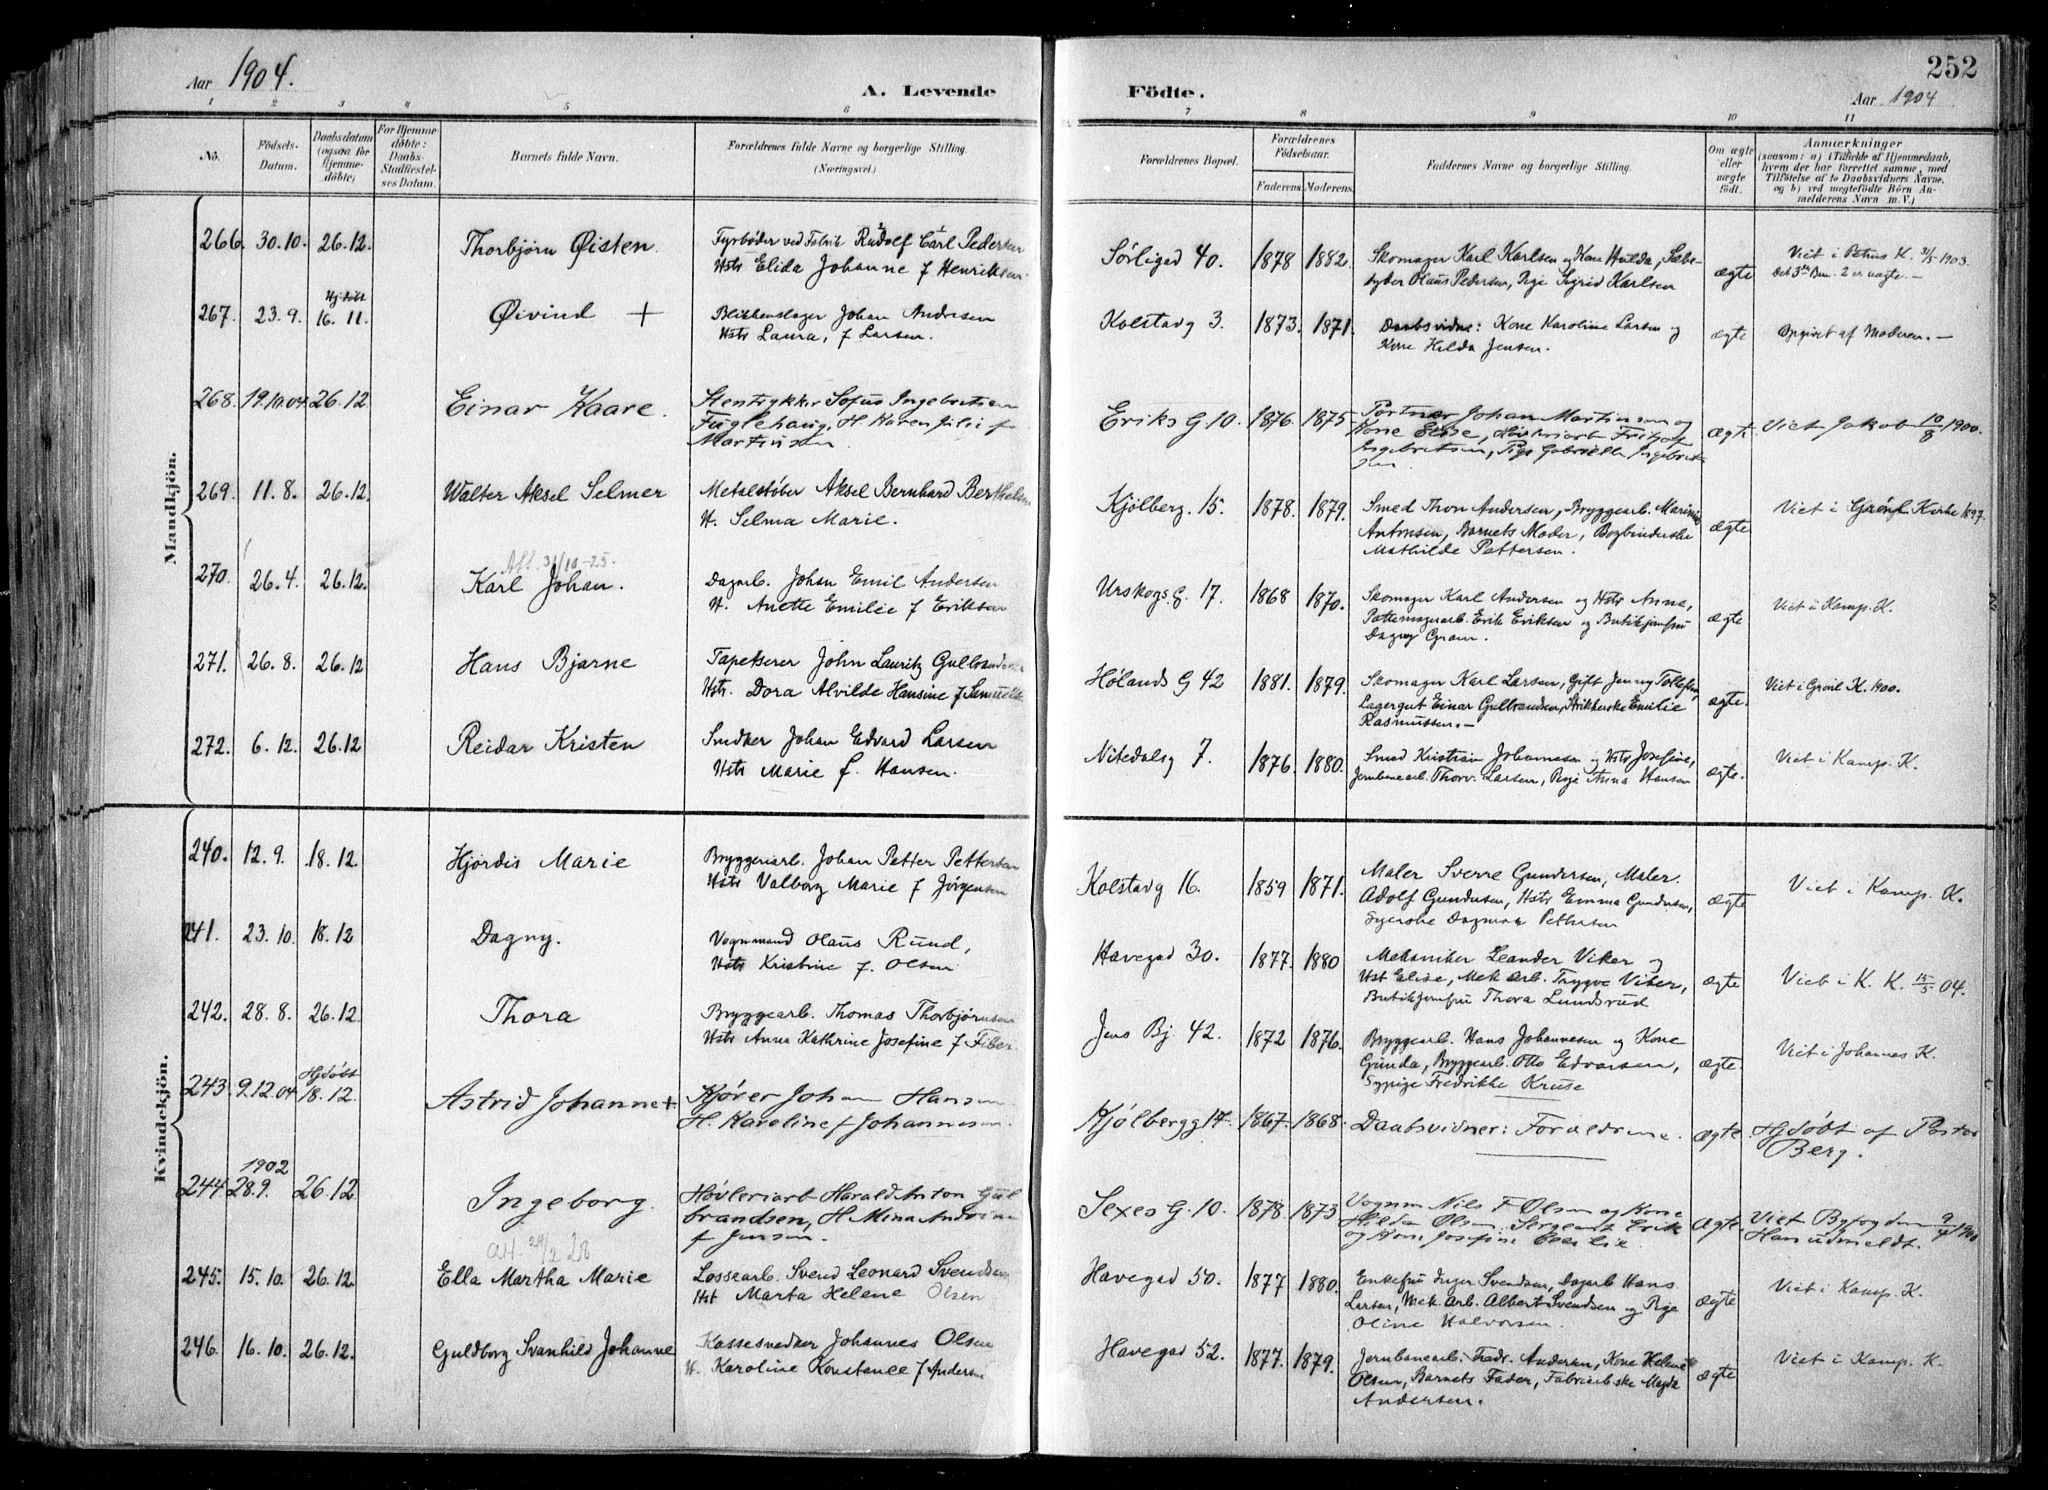 Aar 1904.
A. Levende
1 2 3 4 5 6
No.
Födsels-
Datum.
Daabsdatum
(ogsaa for
Hjemme-
döbte)
For Hjemme-
döbte:
Daabs-
Stadfæstel-
ses Datum.
Barnets fulde Navn.
Forældrenes fulde Navne og borgerlige Stilling.
(Næringsvei.)
Mandkjön.
266. 30.10. 26.12. Thorbjørn Øisten.
Fyrbøder ved Fabrik Rudolf Carl Pedersen
Hstr Elida Johanne f Henriksen
267. 23.9. Hj.døbt 16.11. Øivind +
Blikkenslager Johan Andersen
Hstr Laura, f Larsen.
268. 19.10.04 26.12 Einar Kaare.
Stentrykker Sofus Ingebretsen
Fuglehaug, H. Karen Julie f
Martinsen
269. 11.8. 26.12. Walter Aksel Selmer
Metalstøber Aksel Bernhard Berthelsen
H. Selma Marie.
Att. 31/10-25.
270. 26.4. 26.12. Karl Johan.
Dagarb. Johan Emil Andersen
H. Anette Emilie f Eriksen
271. 26.8. 26.12 Hans Bjarne
Tapetserer John Lauritz Gulbrandsen
Hstr. Dora Alvilde Hansine f
272. 6.12. 26.12 Reidar Kristen
Snedker Johan Edvard Larsen
Hstr Marie f. Hansen.
Kvindekjön.
240. 12.9. 18.12. Hjørdis Marie
Bryggeriarb. Johan Petter Pettersen
Hstr Valborg Marie f Jørgensen
241. 23.10. 18.12 Dagny.
Vognmand Olaus Rund,
Hstr Kristine f. Olsen
242. 28.8. 26.12. Thora
Bryggearb. Thomas Thorbjørnsen
Hstr Anna Kathrine Josefine f Fiber.
243. 9.12.04 Hjdøbt 18.12. Astrid Johanne +
Kjører Johan Hansen
H. Karoline f Johannesen.
244 1902 28.9. 26.12 Ingeborg.
Høvleriarb Harald Anton Gul
brandsen, H Mina Andrine
f Jensen.
Att. 24/2 28
245. 15.10. 26.12. Ella Martha Marie
Lossearb. Svend Leonard Svendsen
Hst Marta Helene Olsen
246. 16.10. 26.12. Guldborg Svanhild Johanne
Kassesnedker Johannes Olsen
H. Karoline Konstance f Andersen
252
Födte.
Aar 1904
7 8 9 10 11
Forældrenes Bopæl.
Forældrenes
Födselsaar.
Faderens. Moderens.
Faddernes Navne og borgerlige Stilling.
Om ægte
eller
uægte
födt.
Anmærkninger
(saasom: a) i Tilfælde af Hjemmedaab,
hvem der har forrettet samme, med
Tilföielse af to Daabsvidners Navne,
og b) ved uægtefödte Börn An-
melderens Navn m. V.)
Sørligad 40. 1878 1882.
Skomager Karl Karlsen og Kone Hulda, Sæbe-
syder Olaus Pedersen, Pige Sigrid Karlsen
ægte
Viet i Petrus K. 31/5 1903.
Det 3die Barn. 2 er uægte. —
Kolstadg 3. 1873. 1871.
Daabsvidne: Kone Karoline Larsen og
Kone Hilda Jensen.
ægte
Opgivet af Moderen. —
Eriks G 10. 1876. 1875
Portner Johan Martinsen og
Kone Elise, Høvleriarb Fritjof
Ingebretsen, Pige Gabrielle Ingebret
sen
ægte
Viet Jakob 10/8 1900.
Kjølberg. 15. 1878. 1879.
Smed Thon Andersen, Bryggearb. Marinius
Antonsen, Barnets Moder, Bogbinderske
Mathilde Pettersen.
ægte
Viet i Grønl Kirke 1897.
Urskogs G. 17. 1868 1870.
Skomager Karl Andersen og Hstr Anna,
Pottemagerarb. Erik Eriksen og Butikjomfru
Dagny Gram.
ægte
Viet i Kamp. K.
Hølands G 42 1881. 1879.
Skomager Karl Larsen, Gift Jenny Tollefsen,
Lagergut Einar Gulbrandsen, Strikkerske Emilie
Rasmussen. —
ægte.
Viet i Grønl K. 1900.
Nitedalsg 7. 1876. 1880.
Smed Kristian Johannesen og Hstr Josefine,
Jernbanearb. Thorv. Larsen, Pige Anna Hansen
ægte.
Viet i Kamp. K.
Kolstadg 16. 1859 1871.
Maler Sverre Gundersen, Maler
Adolf Gundersen, Hstr Emma Gundersen,
Syerske Dagmar Pettersen
ægte
Viet i Kamp. K.
Havegad 30. 1877. 1880
Mekaniker Leander Viker og
Hst Elise, Mek Arb. Trygve Viker,
Butikjomfru Thora Lundsrud
ægte
Viet i K. K. 15/5 04.
Jens Bj 42. 1872 1876.
Bryggearb. Hans Johannesen og Kone
Gunda, Bryggearb. Otto Edvarsen,
Sypige Fredrikke Kruse
ægte.
Viet i Johannes K.
Kjølbergg 17. 1867. 1868.
Daabsvidner: Forældrene.
ægte
Hjdøbt af Pastor
Berg.
Sexes G. 10. 1878. 1873
Vognm Nils F Olsen og Kone
Hilda Olsen. Sergeant Erik
og Kone Josefine
ægte.
Viet Byfogden 9/4 1900
Han udmeldt.
Havegad 50. 1877 1880.
Enkefru Inger Svendsen, Dagarb Hans
Larsen, Mek. Arb. Albert Svendsen og Pige
Oline Halvorsen.
ægte
Viet i Kamp. K.
Havegad 52. 1877. 1879.
Jernbanearb. Fredr. Andersen, Kone Helene
Olsen, Barnets Fader, Fabrikarb.ske Magda
Andersen.
ægte
Viet i Kamp. K.